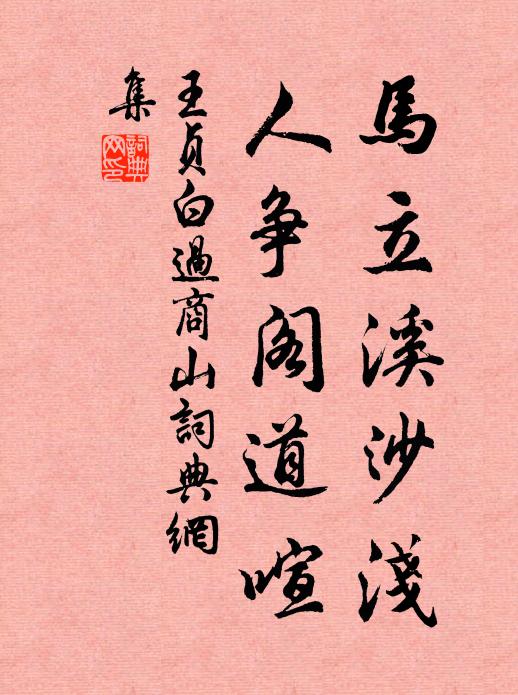 馬立溪沙淺
人爭閣道喧
王貞白過商山詞典網
集
詞典
网印